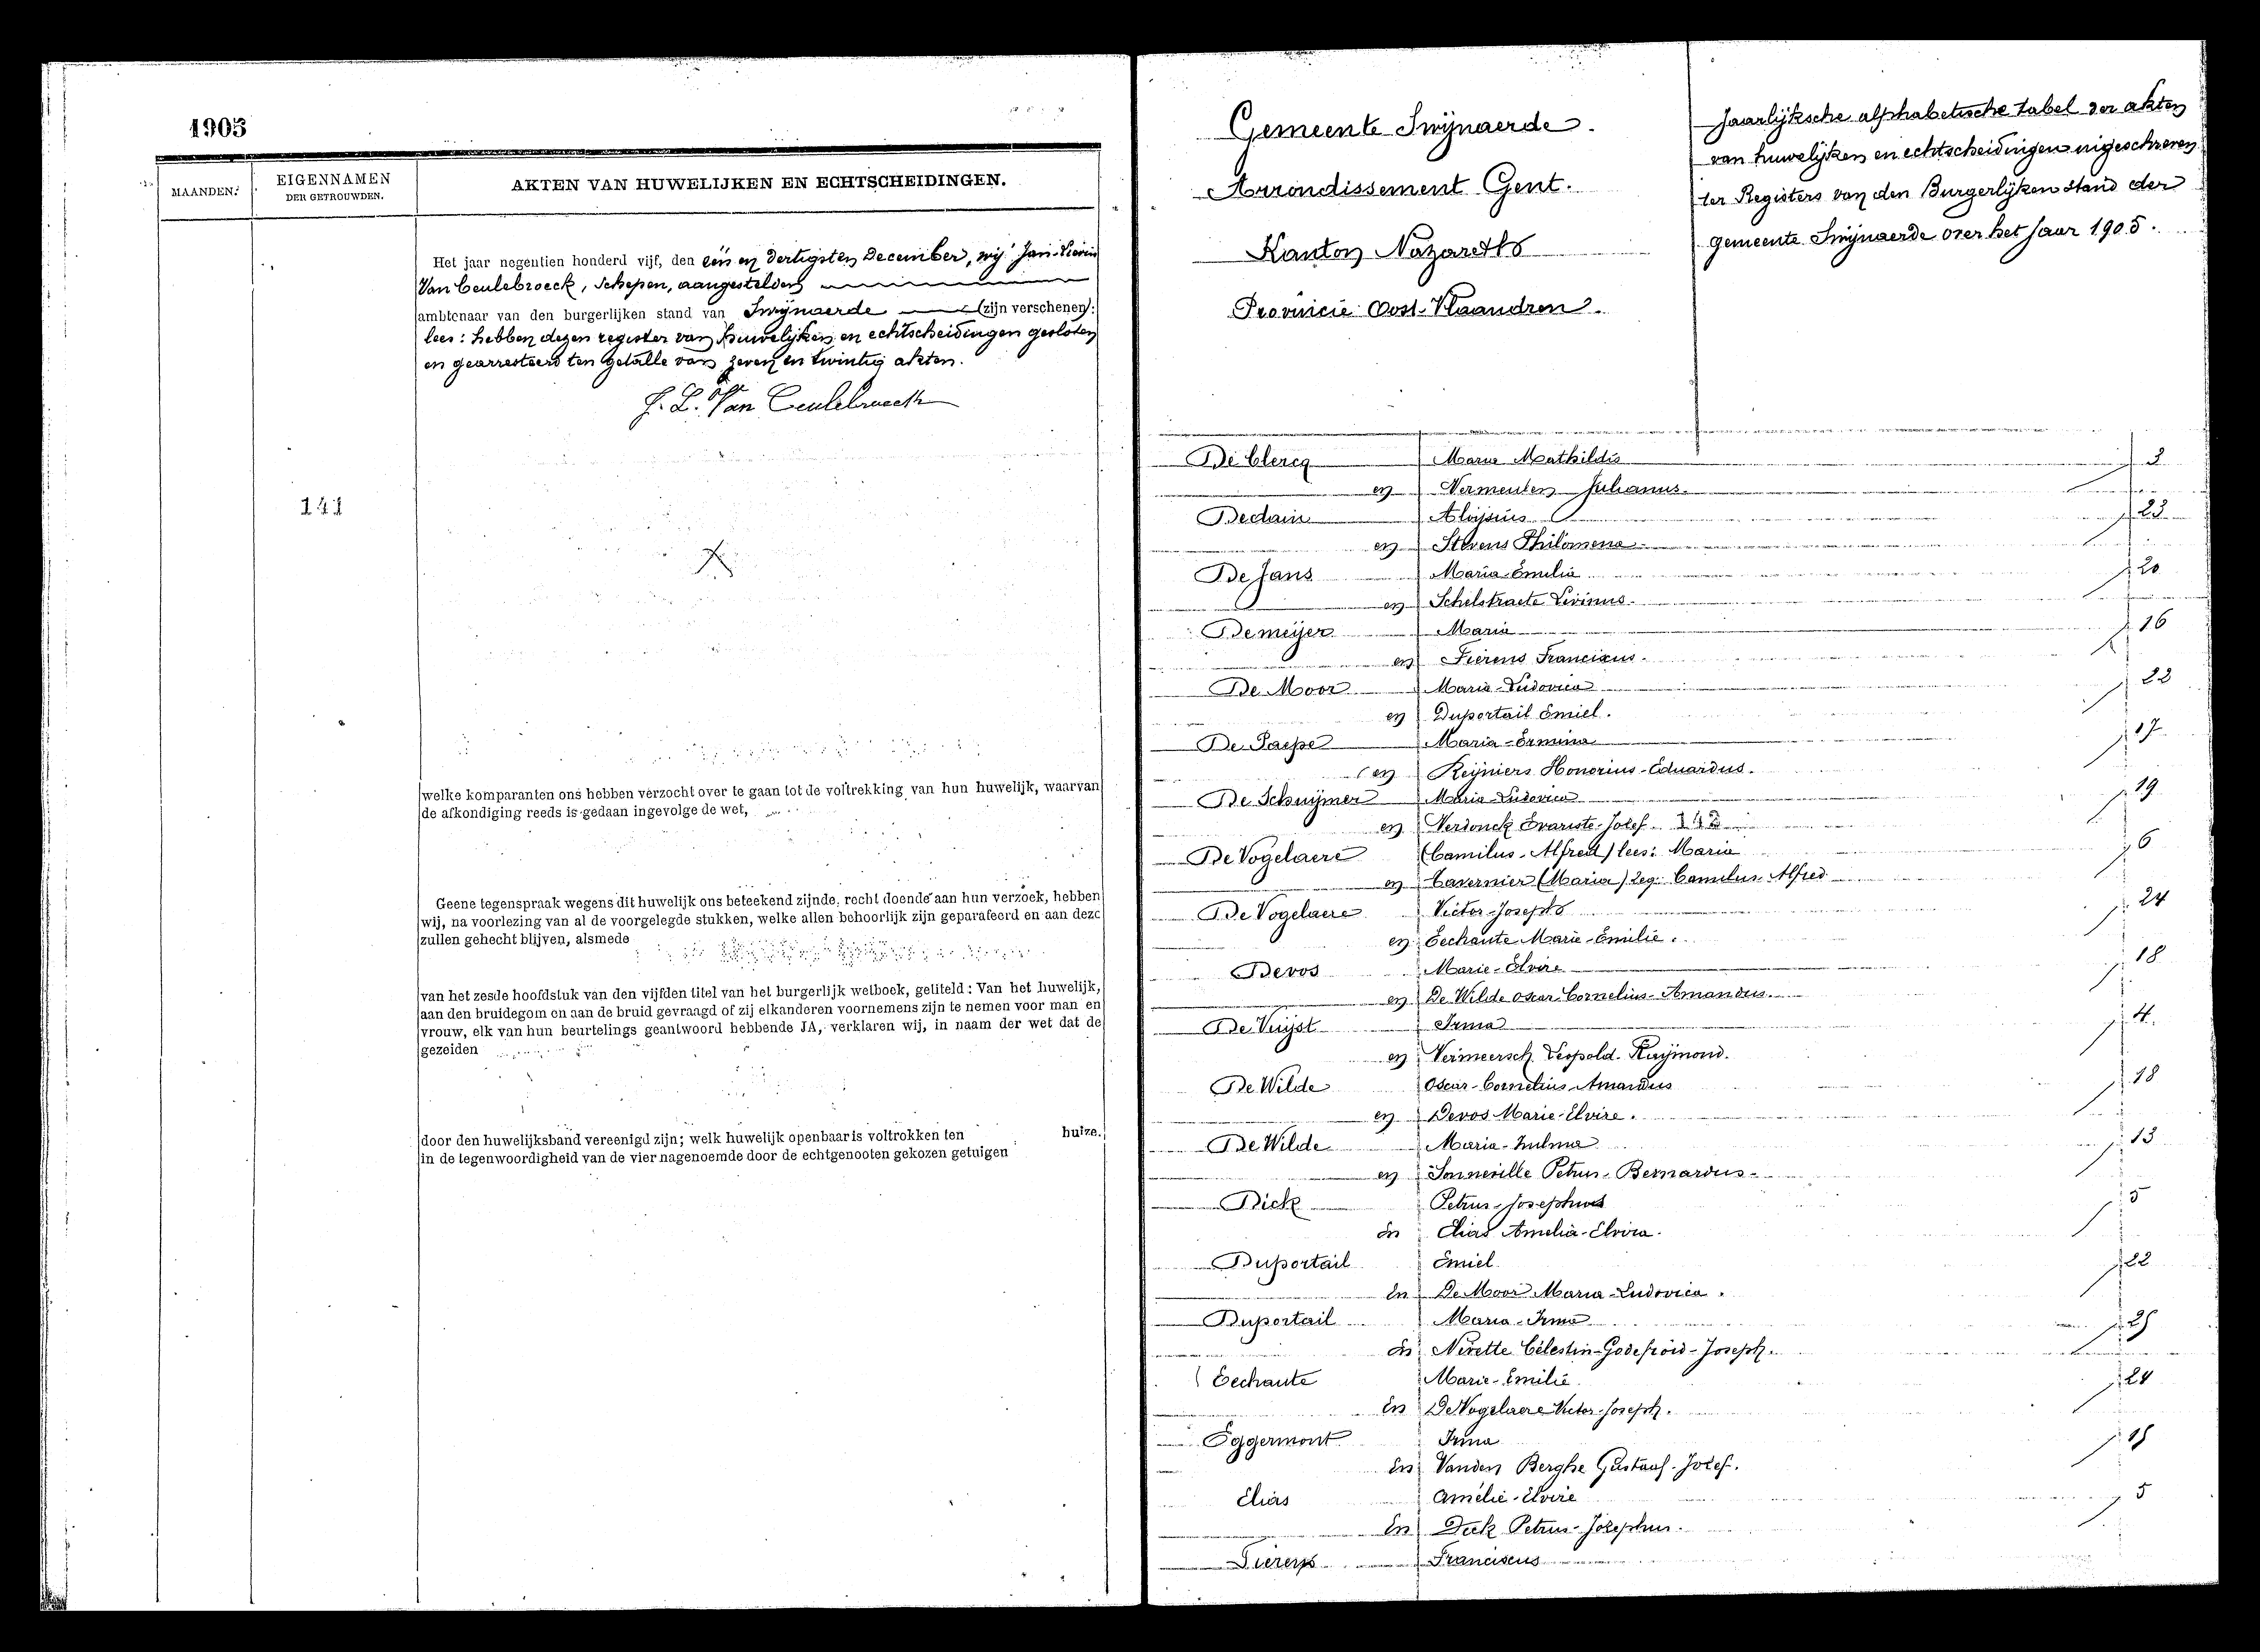 1905
MAANDEN.
EIGENNAMEN
DER GETROUWDEN.
AKTEN VAN HUWELIJKEN EN ECHTSCHEIDINGEN.
Het jaar negentien honderd vijf, den één en dertigsten December, wij Jan-Lievin
Van Ceulebroeck, Schepen, aangestelden
ambtenaar van den burgerlijken stand van Swijnaerde (zijn verschenen):
lees: hebben dezen register van huwelijken en echtscheidingen gesloten
en gearresteerd ten getalle van zeven en twintig akten.
J. L. Van Ceulebroeck
141
welke komparanten ons hebben verzocht over te gaan tot de voltrekking van hun huwelijk, waarvan
de afkondiging reeds is gedaan ingevolge de wet,
Geene tegenspraak wegens dit huwelijk ons beteekend zijnde, recht doende aan hun verzoek, hebben
wij, na voorlezing van al de voorgelegde stukken, welke allen behoorlijk zijn geparafeerd en aan deze
zullen gehecht blijven, alsmede
van het zesde hoofdstuk van den vijfden titel van het burgerlijk wetboek, getiteld: Van het huwelijk,
aan den bruidegom en aan de bruid gevraagd of zij elkanderen voornemens zijn te nemen voor man en
vrouw, elk van hun beurtelings geantwoord hebbende JA, verklaren wij, in naam der wet dat de
gezeiden
door den huwelijksband vereenigd zijn; welk huwelijk openbaar is voltrokken ten huize.
in de tegenwoordigheid van de vier nagenoemde door de echtgenooten gekozen getuigen
Gemeente Swijnaerde.
Arrondissement Gent.
Kanton Nazareth
Provincie Oost-Vlaandren.
Jaarlijksche alphabetische tabel der akten
van huwelijken en echtscheidingen ingeschreven
ter Registers van den Burgerlijken stand der
gemeente Swijnaerde over het jaar 1905.
De Clercq Marie Mathildis 3
en Vermeulen Julianus
Aloijsius 23
en Stevens Philomena
De Jans Maria-Emilia 20
en Schelstraete Livinus
Demeijer Maria 16
en Fierens Franciscus
De Moor Maria-Ludovica 22
en Duportail Emiel.
De Paepe Maria-Ermina 17
en Reijniers Honorius-Eduardus.
De Schuijmer Maria-Ludovica 19
en Verdonck Evariste-Josef 142
De Vogelaere (Camilus-Alfred) lees: Maria 6
en Tavernier (Maria) leg: Camilus Alfred
De Vogelaere Victor-Joseph 24
en Eechaute Marie-Emilie.
Devos Marie-Elvire 18
en De Wilde Oscar-Cornelius-Amandus.
De Vuijst Irma 4.
en Vermeersch Leopold-Raijmond.
De Wilde Oscar-Cornelius-Amandus 18
en Devos Marie-Elvire.
De Wilde Maria-Zulma 13
en Sonneville Petrus-Bernardus
Dick Petrus-Josephus 5
En Elias Amelia-Elvira.
Duportail Emiel 22
En De Moor Maria-Ludovica.
Duportail Maria-Irma 25
En Nerette Célestin-Godefroid-Joseph.
Eechaute Marie-Emilie 24
En De Vogelaere Victor-Joseph.
Eggermont Irma 15
En Vanden Berghe Gustaaf-Josef.
Elias Amélie-Elvire 5
En Dick Petrus-Josephus.
Fierens Franciscus